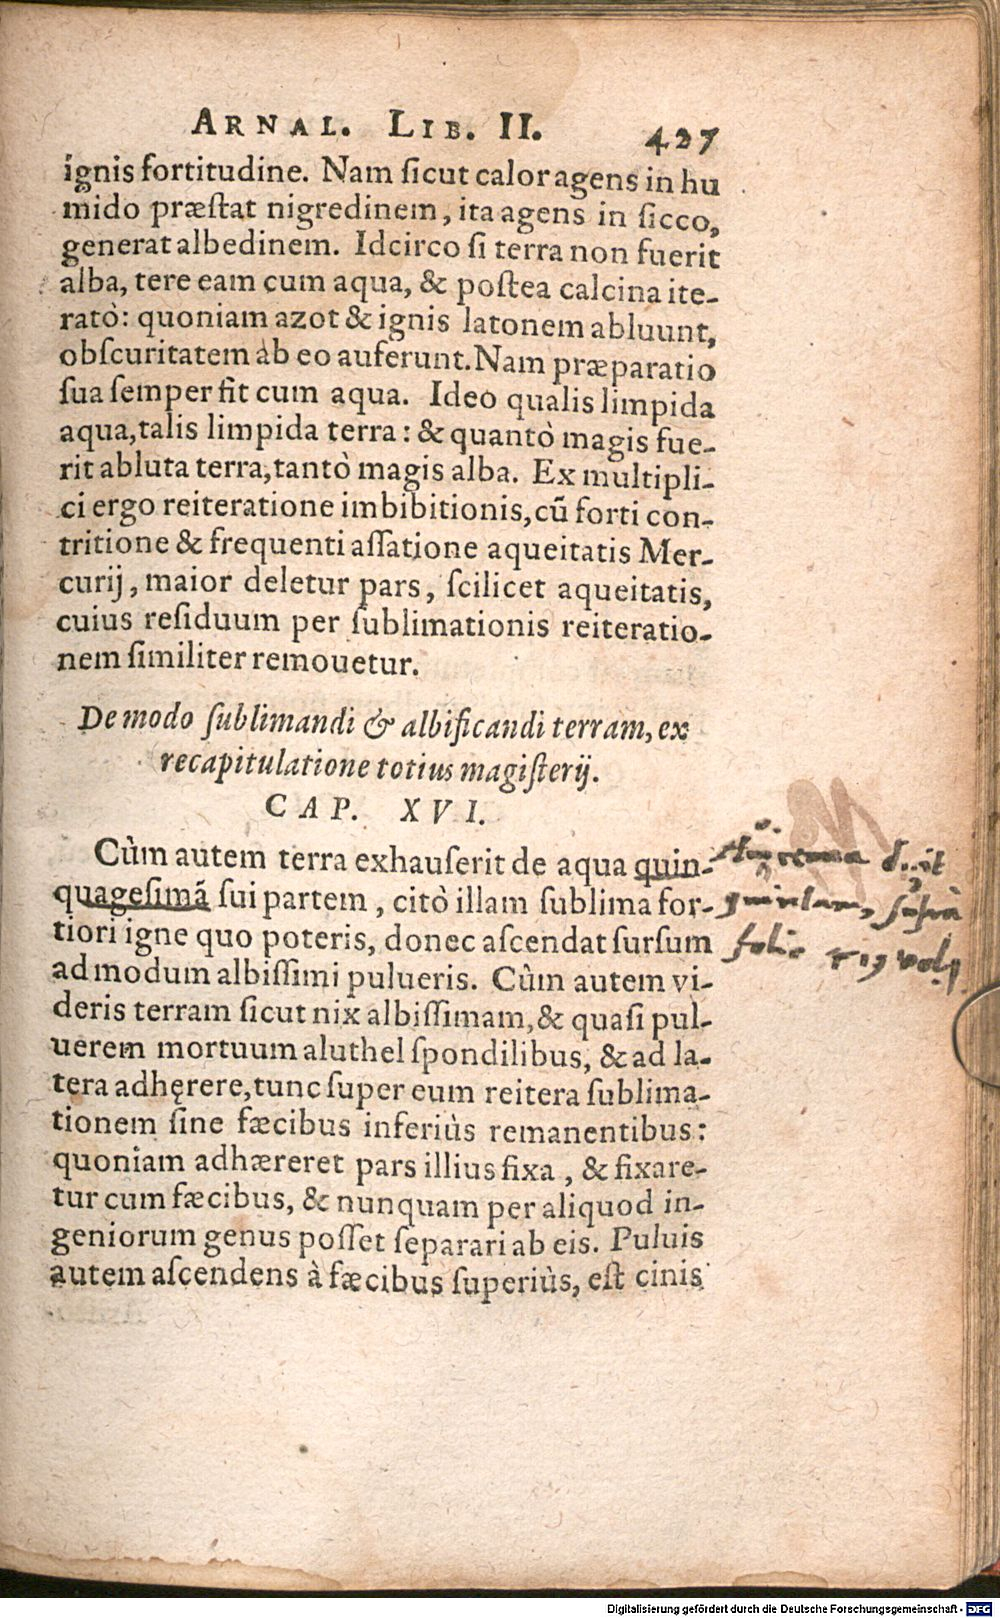 ARNAL. LIB. II. 427
ignis fortitudine. Nam ſicut calor agens in hu
mido præſtat nigredinem, ita agens in ſicco,
generat albedinem. Idcirco ſi terra non fuerit
alba, tere eam cum aqua, & poſtea calcina ite-
ratò: quoniam azot & ignis latonem abluunt,
obſcuritatem ab eo auferunt. Nam præparatio
ſua ſemper fit cum aqua. Ideo qualis limpida
aqua, talis limpida terra: & quantò magis fue-
rit abluta terra, tantò magis alba. Ex multipli-
ci ergo reiteratione imbibitionis, cū forti con-
tritione & frequenti aſſatione aqueitatis Mer-
curij, maior deletur pars, ſcilicet aqueitatis,
cuius reſiduum per ſublimationis reiteratio-
nem ſimiliter remouetur.
De modo ſublimandi & albificandi terram, ex
recapitulatione totius magiſterij.
CAP. XVI.
Cùm autem terra exhauſerit de aqua quin-
quageſimā ſui partem, citò illam ſublima for-
tiori igne quo poteris, donec aſcendat ſurſum
ad modum albiſſimi pulueris. Cùm autem vi-
deris terram ſicut nix albiſſimam, & quaſi pul-
uerem mortuum aluthel ſpondilibus, & ad la-
tera adhęrere, tunc ſuper eum reitera ſublima-
tionem ſine fæcibus inferiùs remanentibus:
quoniam adhæreret pars illius fixa, & fixare-
tur cum fæcibus, & nunquam per aliquod in-
geniorum genus poſſet ſeparari ab eis. Puluis
autem aſcendens à fæcibus ſuperiùs, eſt cinis
quintam, supra
folio
Digitalisierung gefördert durch die Deutsche Forschungsgemeinschaft - DFG